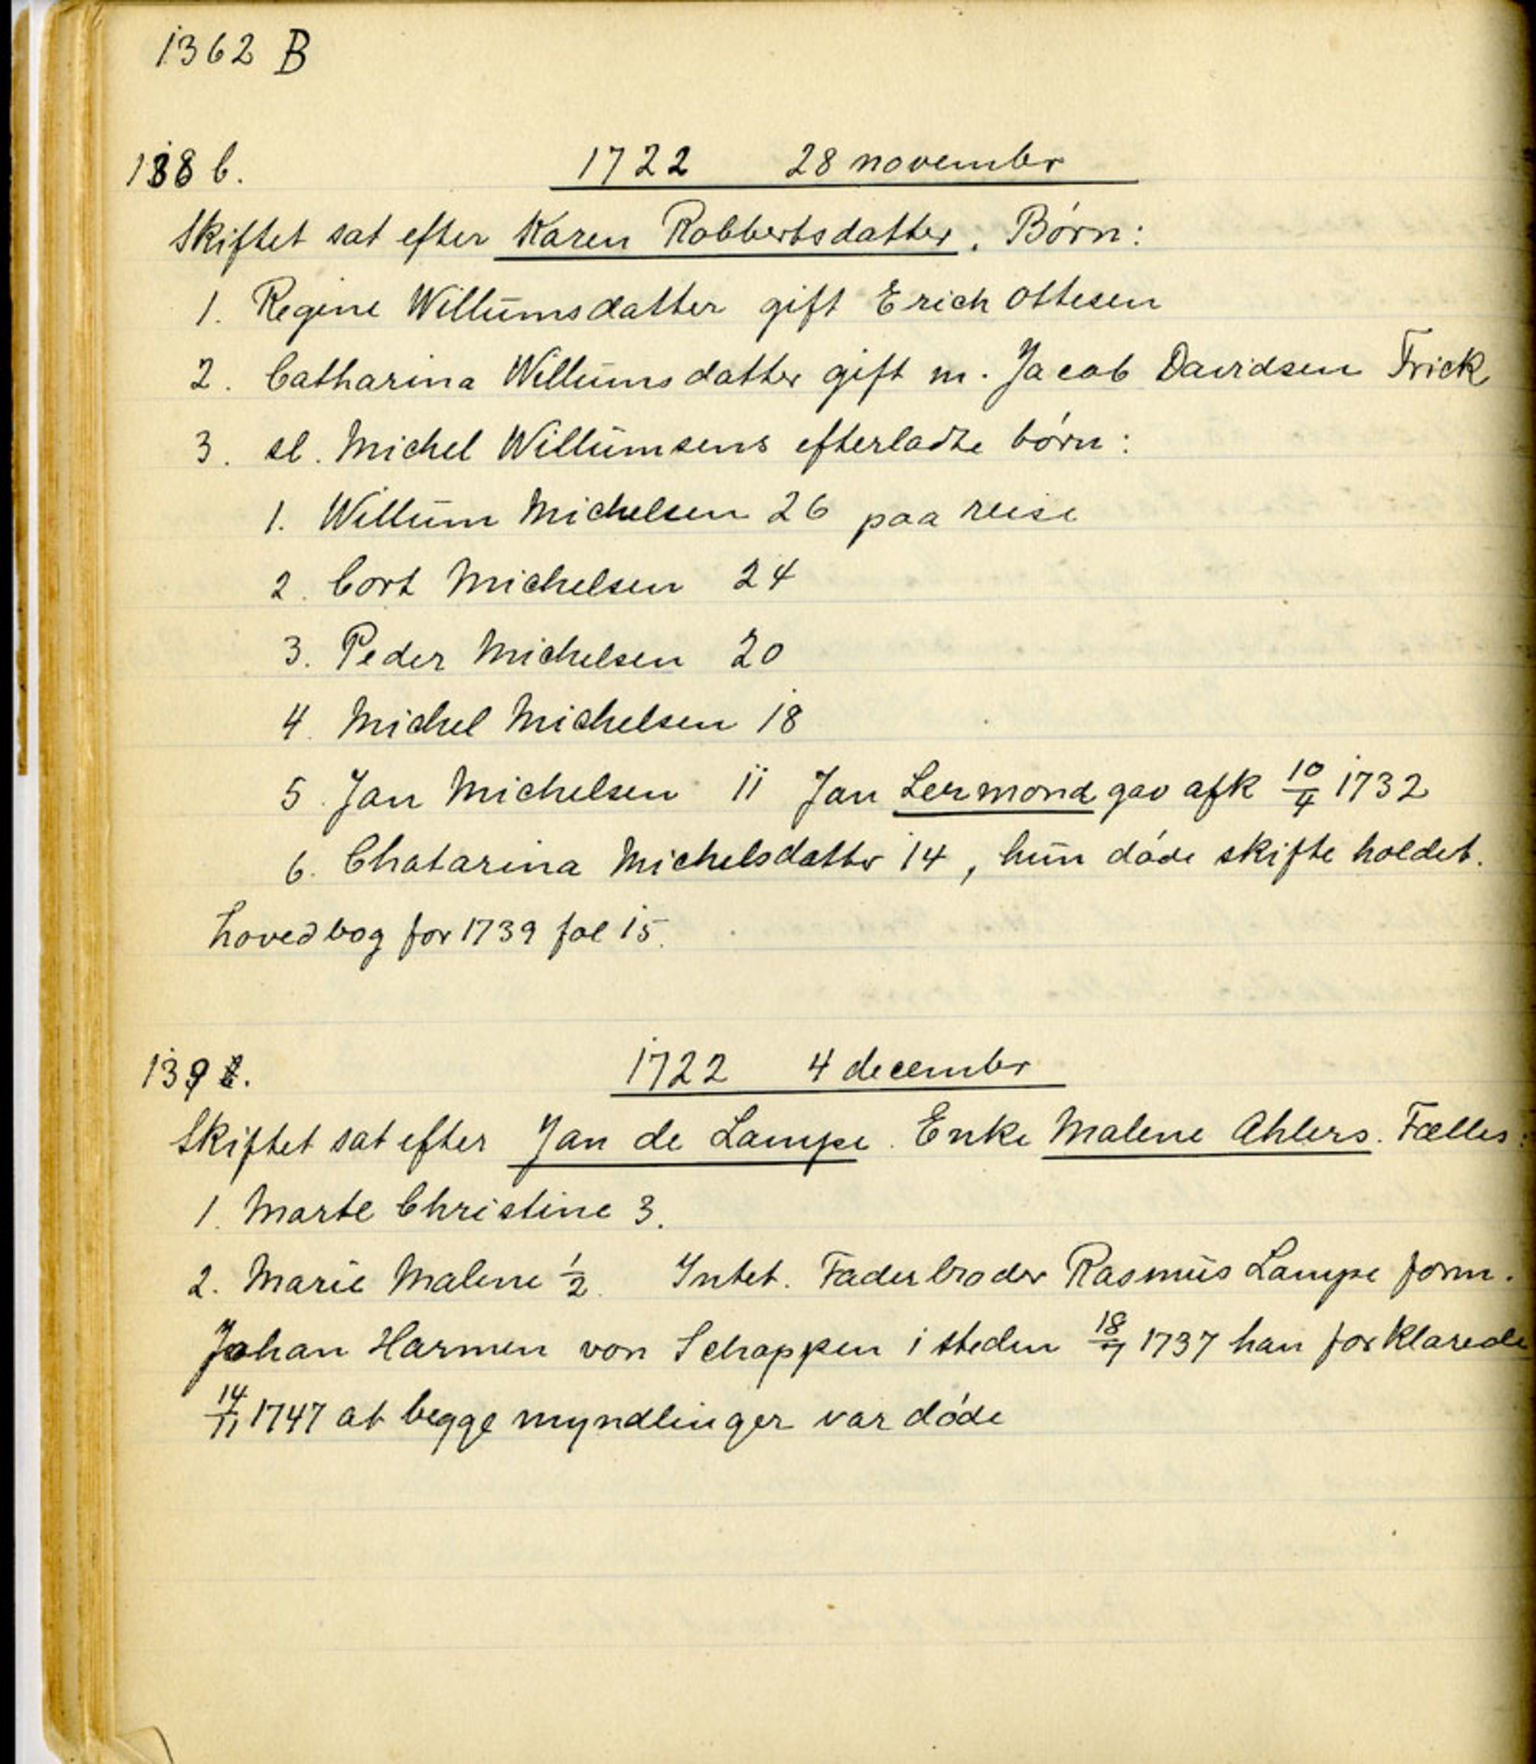 1362 B
138 b. 1722 28 novembr
Skiftet sat efter Karen Robbertsdatter. Børn:
1. Regine Willumsdatter gift Erich Ottesen
2. Catharina Willumsdatter gift m. Jacob Davidsen Frick
3. sl. Michel Willumsens efterladte børn:
1. Willum Michelsen 26 paa reise
2. Cort Michelsen 24
3. Peder Michelsen 20
4. Michel Michelsen 18
5. Jan Michelsen 11 Jan Lermond gav afk 10/4 1732
6. Chatarina Michelsdattr 14, hun døde skifte holdet.
hovedbog for 1739 fol 15.
139. 1722 4 decembr
Skiftet sat efter Jan de Lampe. Enke Malene Ahlers. Fælles:
1. Marte Christine 3.
2. Marie Malene 1/2. Intet. Faderbroder Rasmus Lampe form.
Johan Harmen von Schappen i steden 18/7 1737 han forklarede
14/11 1747 at begge myndlinger var døde